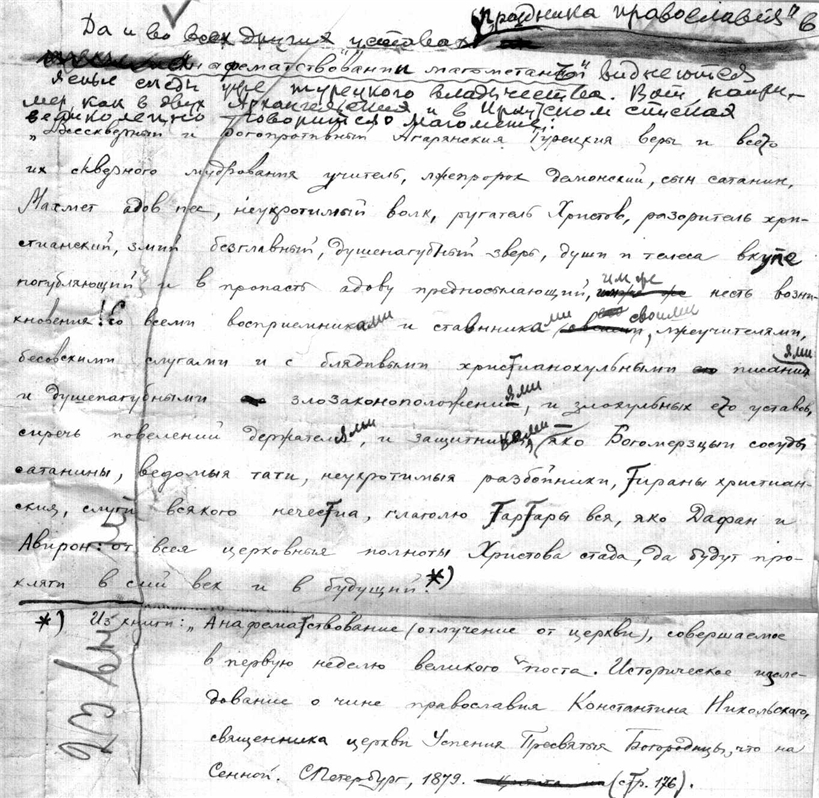 "праздника православия" в
Да и во всех других "уставах
анафематствовании магометан" виднеются
ясные следы уже турецкого владычества. Вот напри-
мер, как в двух Архангельских и в Иркутском списках
велико лепно говорится о Магомете:
"Бесскверный и богопротивный Агарянския Турецкия веры и всего
их скверного мудрования учитель, лжепророк демонский, сын сатанин,
Махмет адов пес, неукротимый волк, ругатель Христов, разоритель хри-
стианский, змий безглавный, душепагубный зверь, души и телеса вкупе
погубляющий и в пропасть адову предпосылающий, им же несть возни-
кновения! Со всеми восприемниками и ставниками своими, лжеучителями,
бесовскими слугами и с блядивыми христианохульными писаниями
и душепагубными злозаконоположениями, и злохульных его уставов,
сиречь повелений держателями, и защитниками, яко Богомерзцыи сосуды
сатанины, ведомыя тати, неукротимыя разбойники, тираны христиан-
ския, слуги всякого нечестиа, глаголю Тартары вся, яко Дафан и
Авирон: от всея церковные полноты Христова стада, да будут про-
кляти в сий век и в будущий". *)
*) Из книги: "Анафематствование (отлучение от церкви), совершаемое
в первую неделю великого поста. Историческое иссле-
дование о чине православия Константина Никольского,
священника церкви Успения Пресвятыя Богородицы, что на
Сенной. СПетербург, 1879. (стр. 176).